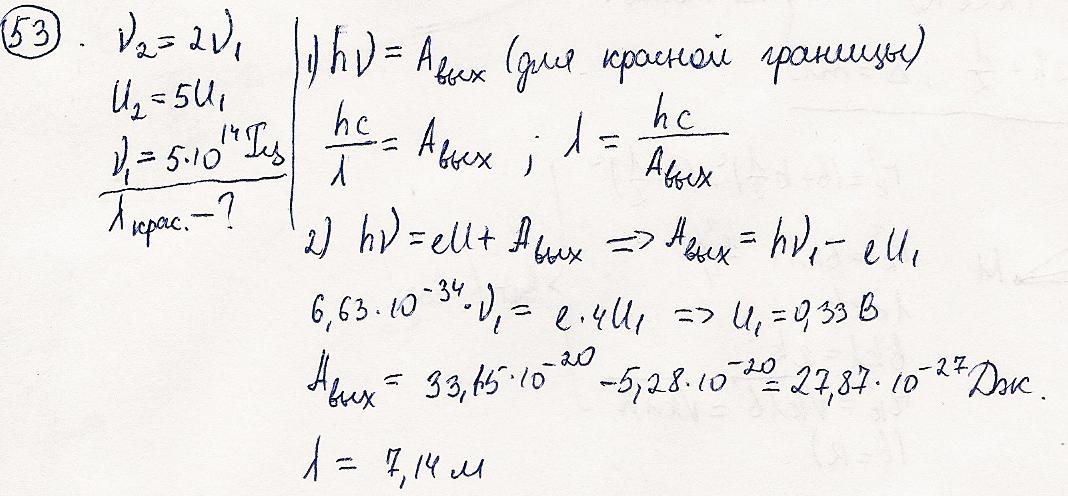 53. ν₂ = 2ν₁
U₂ = 5U₁
ν₁ = 5·10¹⁴ Гц
λкрас. – ?
1) hν = Aвых (для красной границы)
hc/λ = Aвых ; λ = hc/Aвых
2) hν = eU + Aвых => Aвых = hν₁ – eU₁
6,63·10⁻³⁴·ν₁ = e·4U₁ => U₁ = 0,33 В
Aвых = 33,15·10⁻²⁰ – 5,28·10⁻²⁰ = 27,87·10⁻²⁷ Дж.
λ = 7,14 м